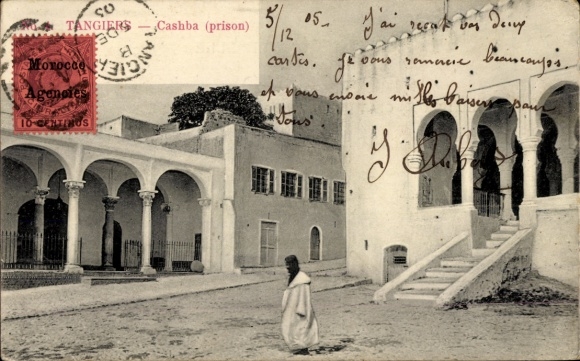 TANGIERS — Cashba (prison)
Morocco
Agencies
10 CENTIMOS
TANGIER
DE
05
5/12 05 — J'ai reçu vos deux
cartes. je vous remercie beaucoup.
et vous envoie mille baisers pour
tous